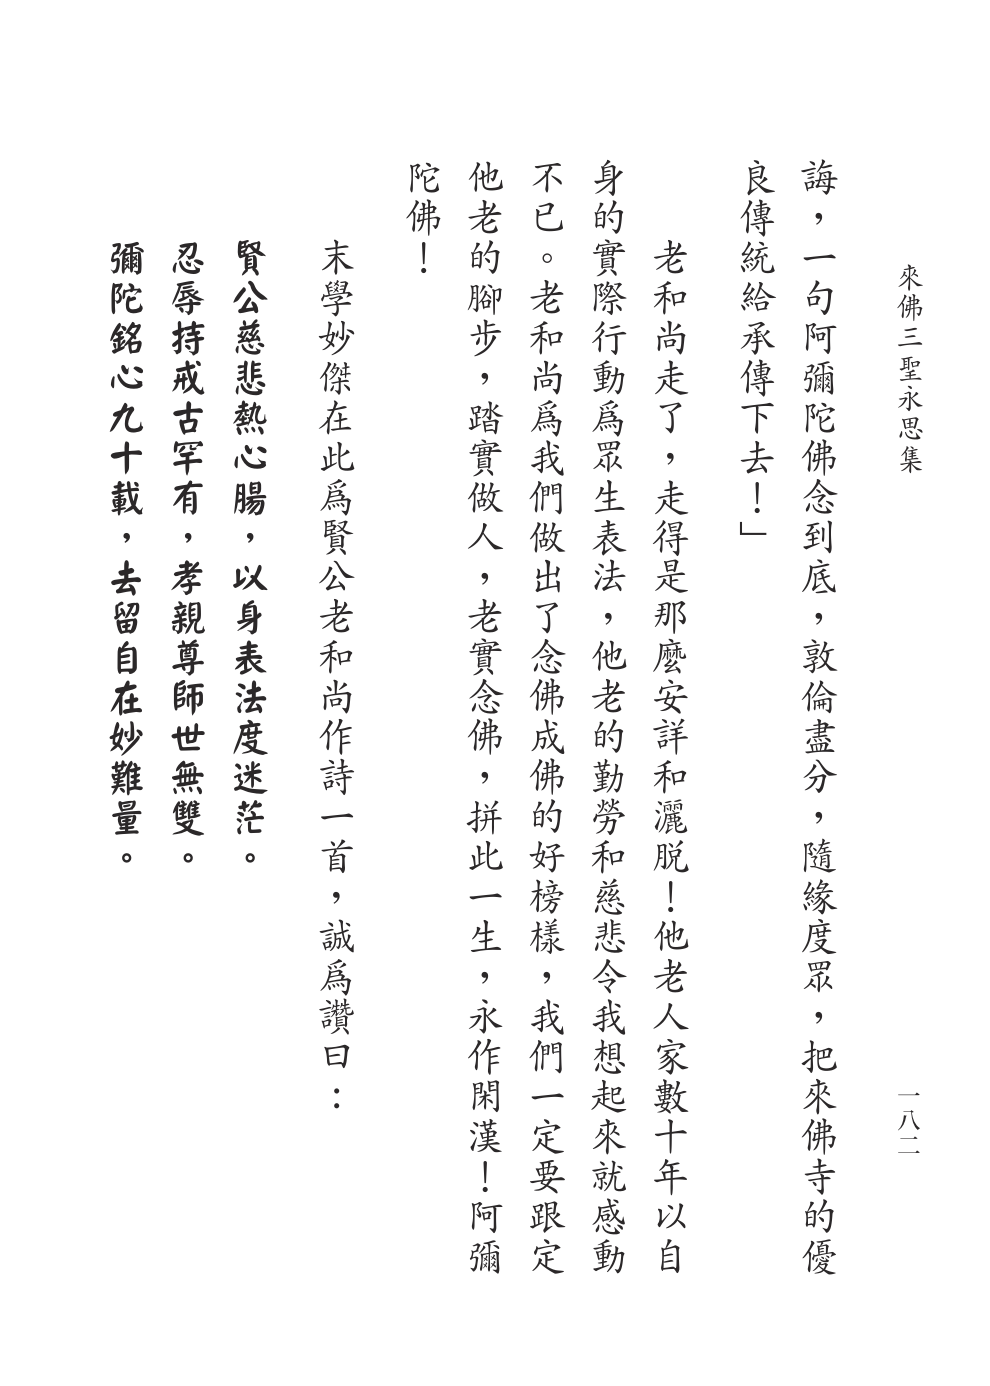 來佛三聖永思集
一八二
誨，一句阿彌陀佛念到底，敦倫盡分，隨緣度眾，把來佛寺的優
良傳統給承傳下去！」
老和尚走了，走得是那麼安詳和灑脫！他老人家數十年以自
身的實際行動爲眾生表法，他老的勤勞和慈悲令我想起來就感動
不已。老和尚爲我們做出了念佛成佛的好榜樣，我們一定要跟定
他老的腳步，踏實做人，老實念佛，拼此一生，永作閑漢！阿彌
陀佛！
末學妙傑在此爲賢公老和尚作詩一首，誠爲讚曰：
賢公慈悲熱心腸，以身表法度迷茫。
忍辱持戒古罕有，孝親尊師世無雙。
彌陀銘心九十載，去留自在妙難量。